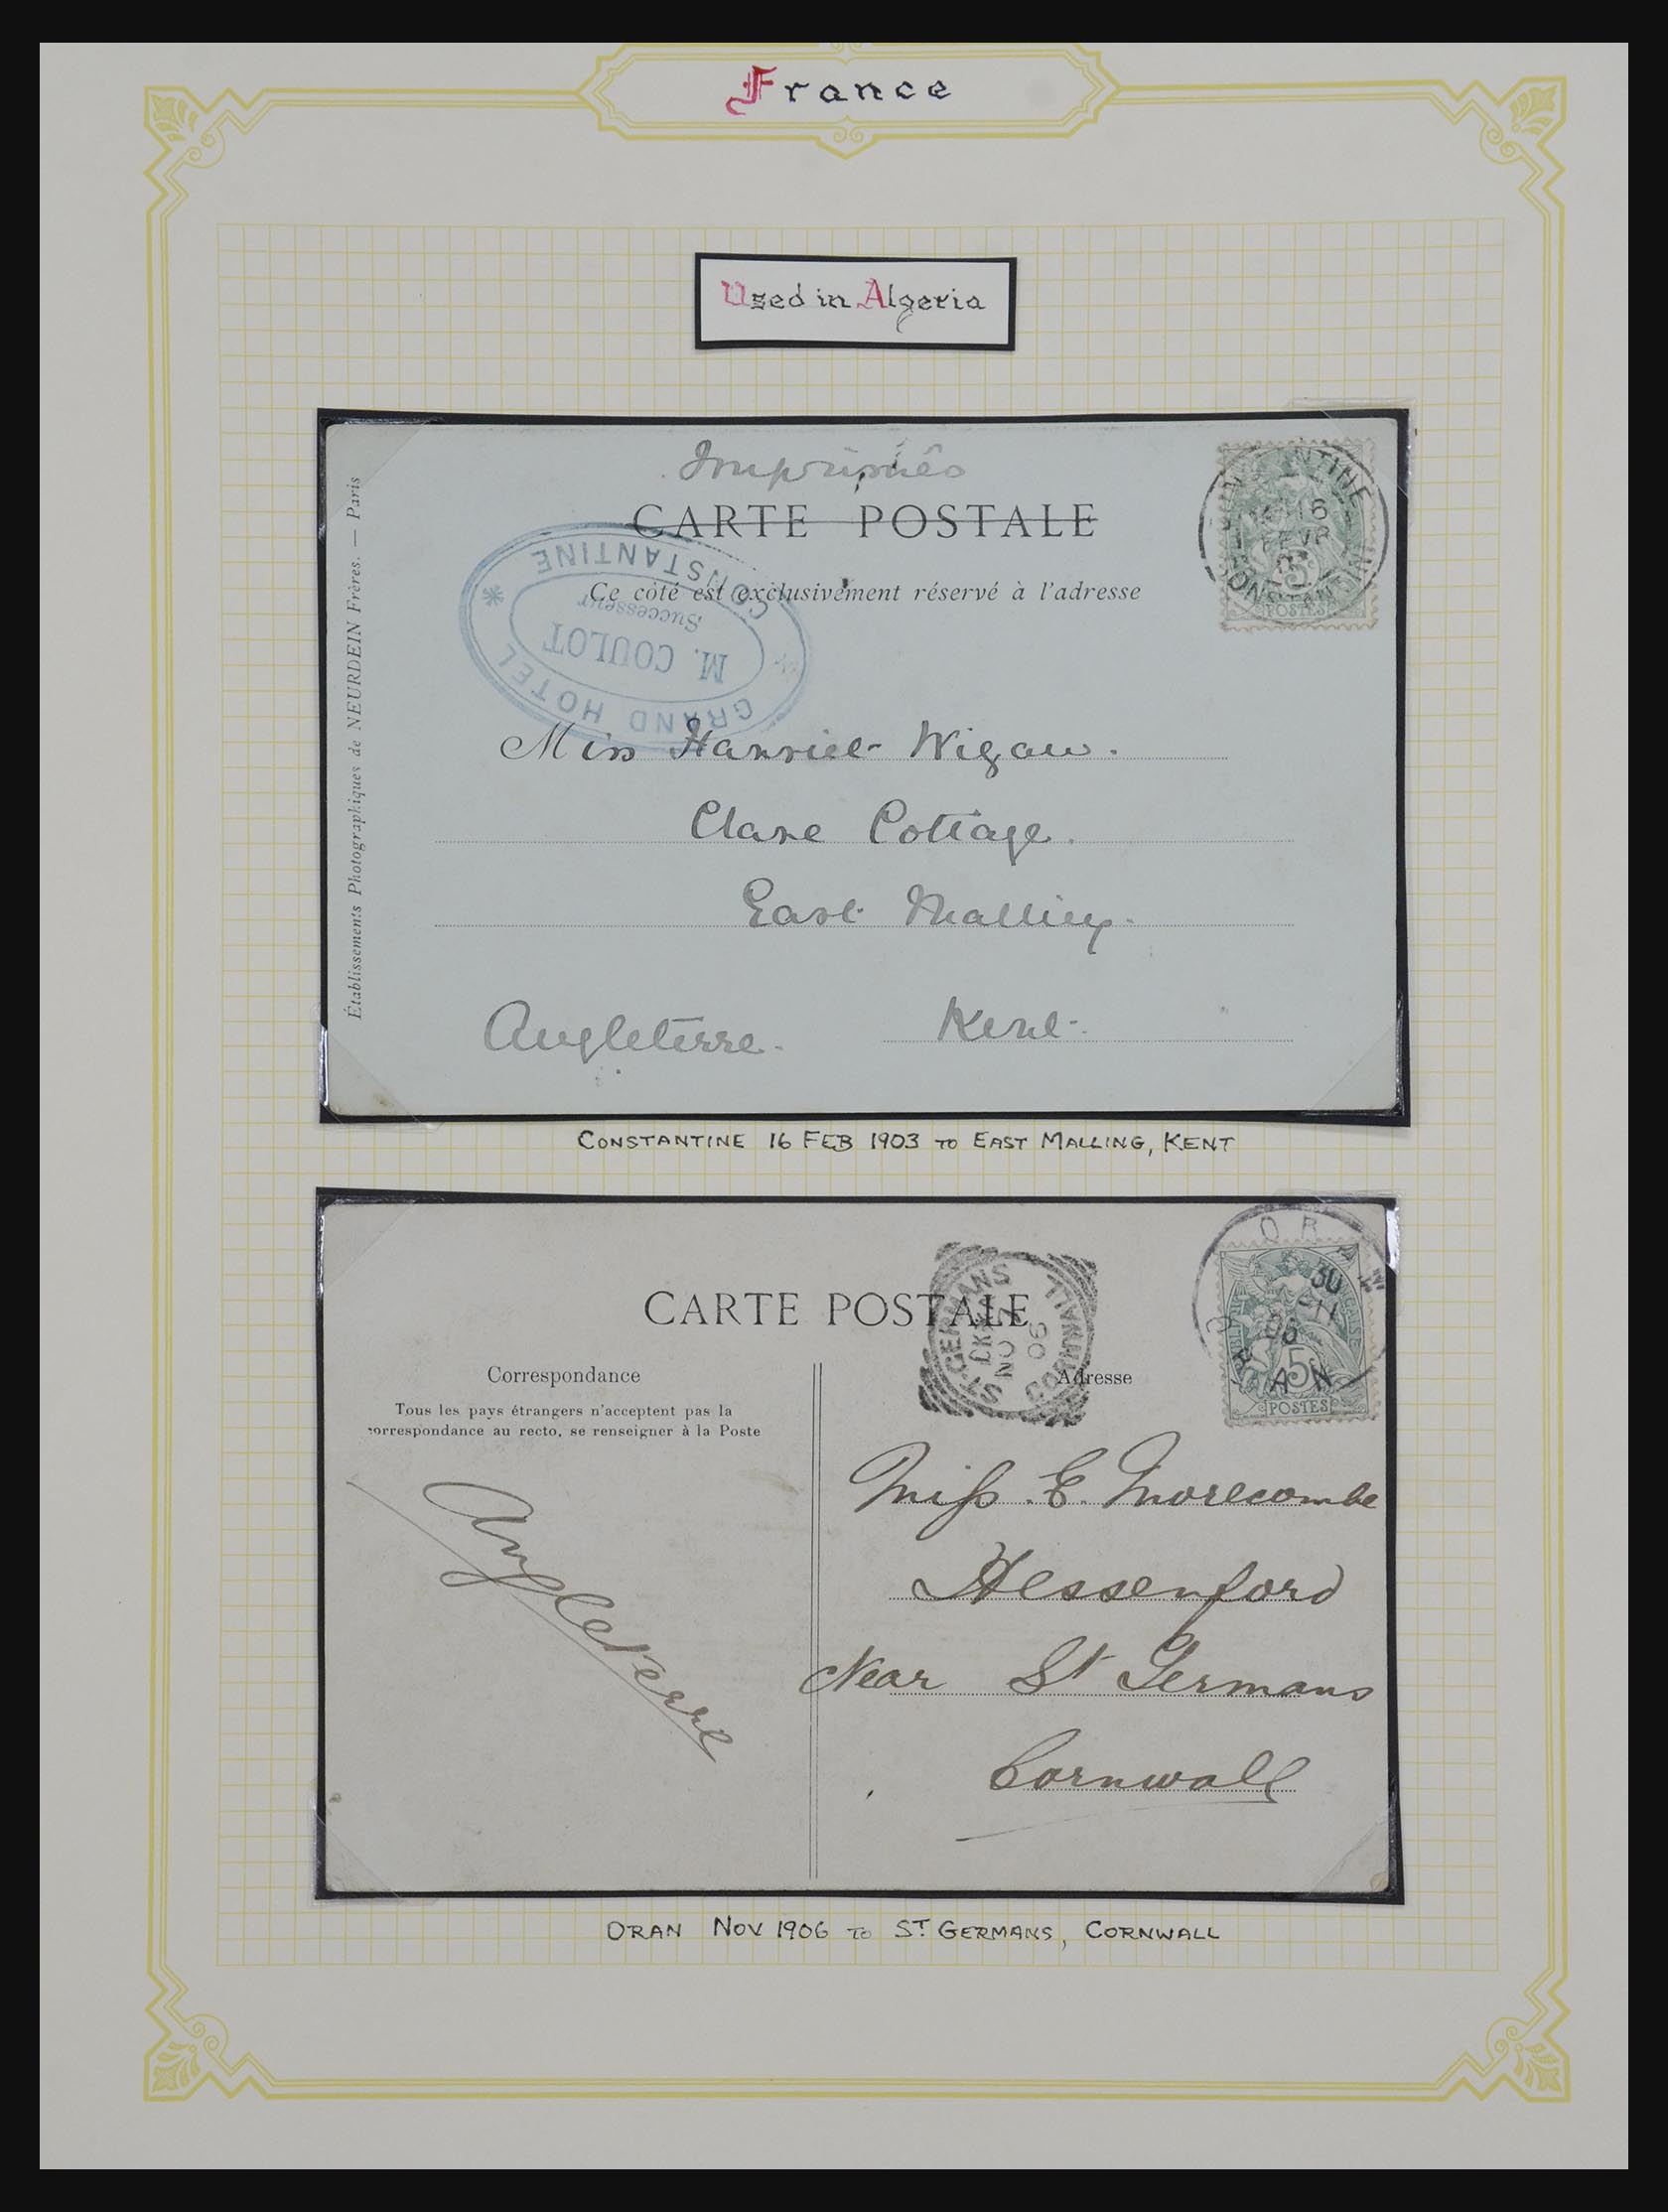 France
Used in Algeria
Imprimés
CARTE POSTALE
Ce côté est exclusivement réservé à l'adresse
CONSTANTINE
16
FEVR
CONSTANTINE
5
POSTES
GRAND HOTEL
M. COULOT
Successeur
CONSTANTINE
Établissements Photographiques de NEURDEIN Frères. — Paris
Miss Harriet Wigan.
Clare Cottage.
East Malling.
Angleterre. Kent.
CONSTANTINE 16 FEB 1903 TO EAST MALLING, KENT
CARTE POSTALE
ST GERMANS
NO
06
CORNWALL
ORAN
30
06
ORAN
5
POSTES
Correspondance
Adresse
Tous les pays étrangers n'acceptent pas la
correspondance au recto, se renseigner à la Poste
Angleterre
Miss. E. Morecombe
Hessenford
Near St Germans
Cornwall
ORAN NOV 1906 TO ST GERMANS, CORNWALL